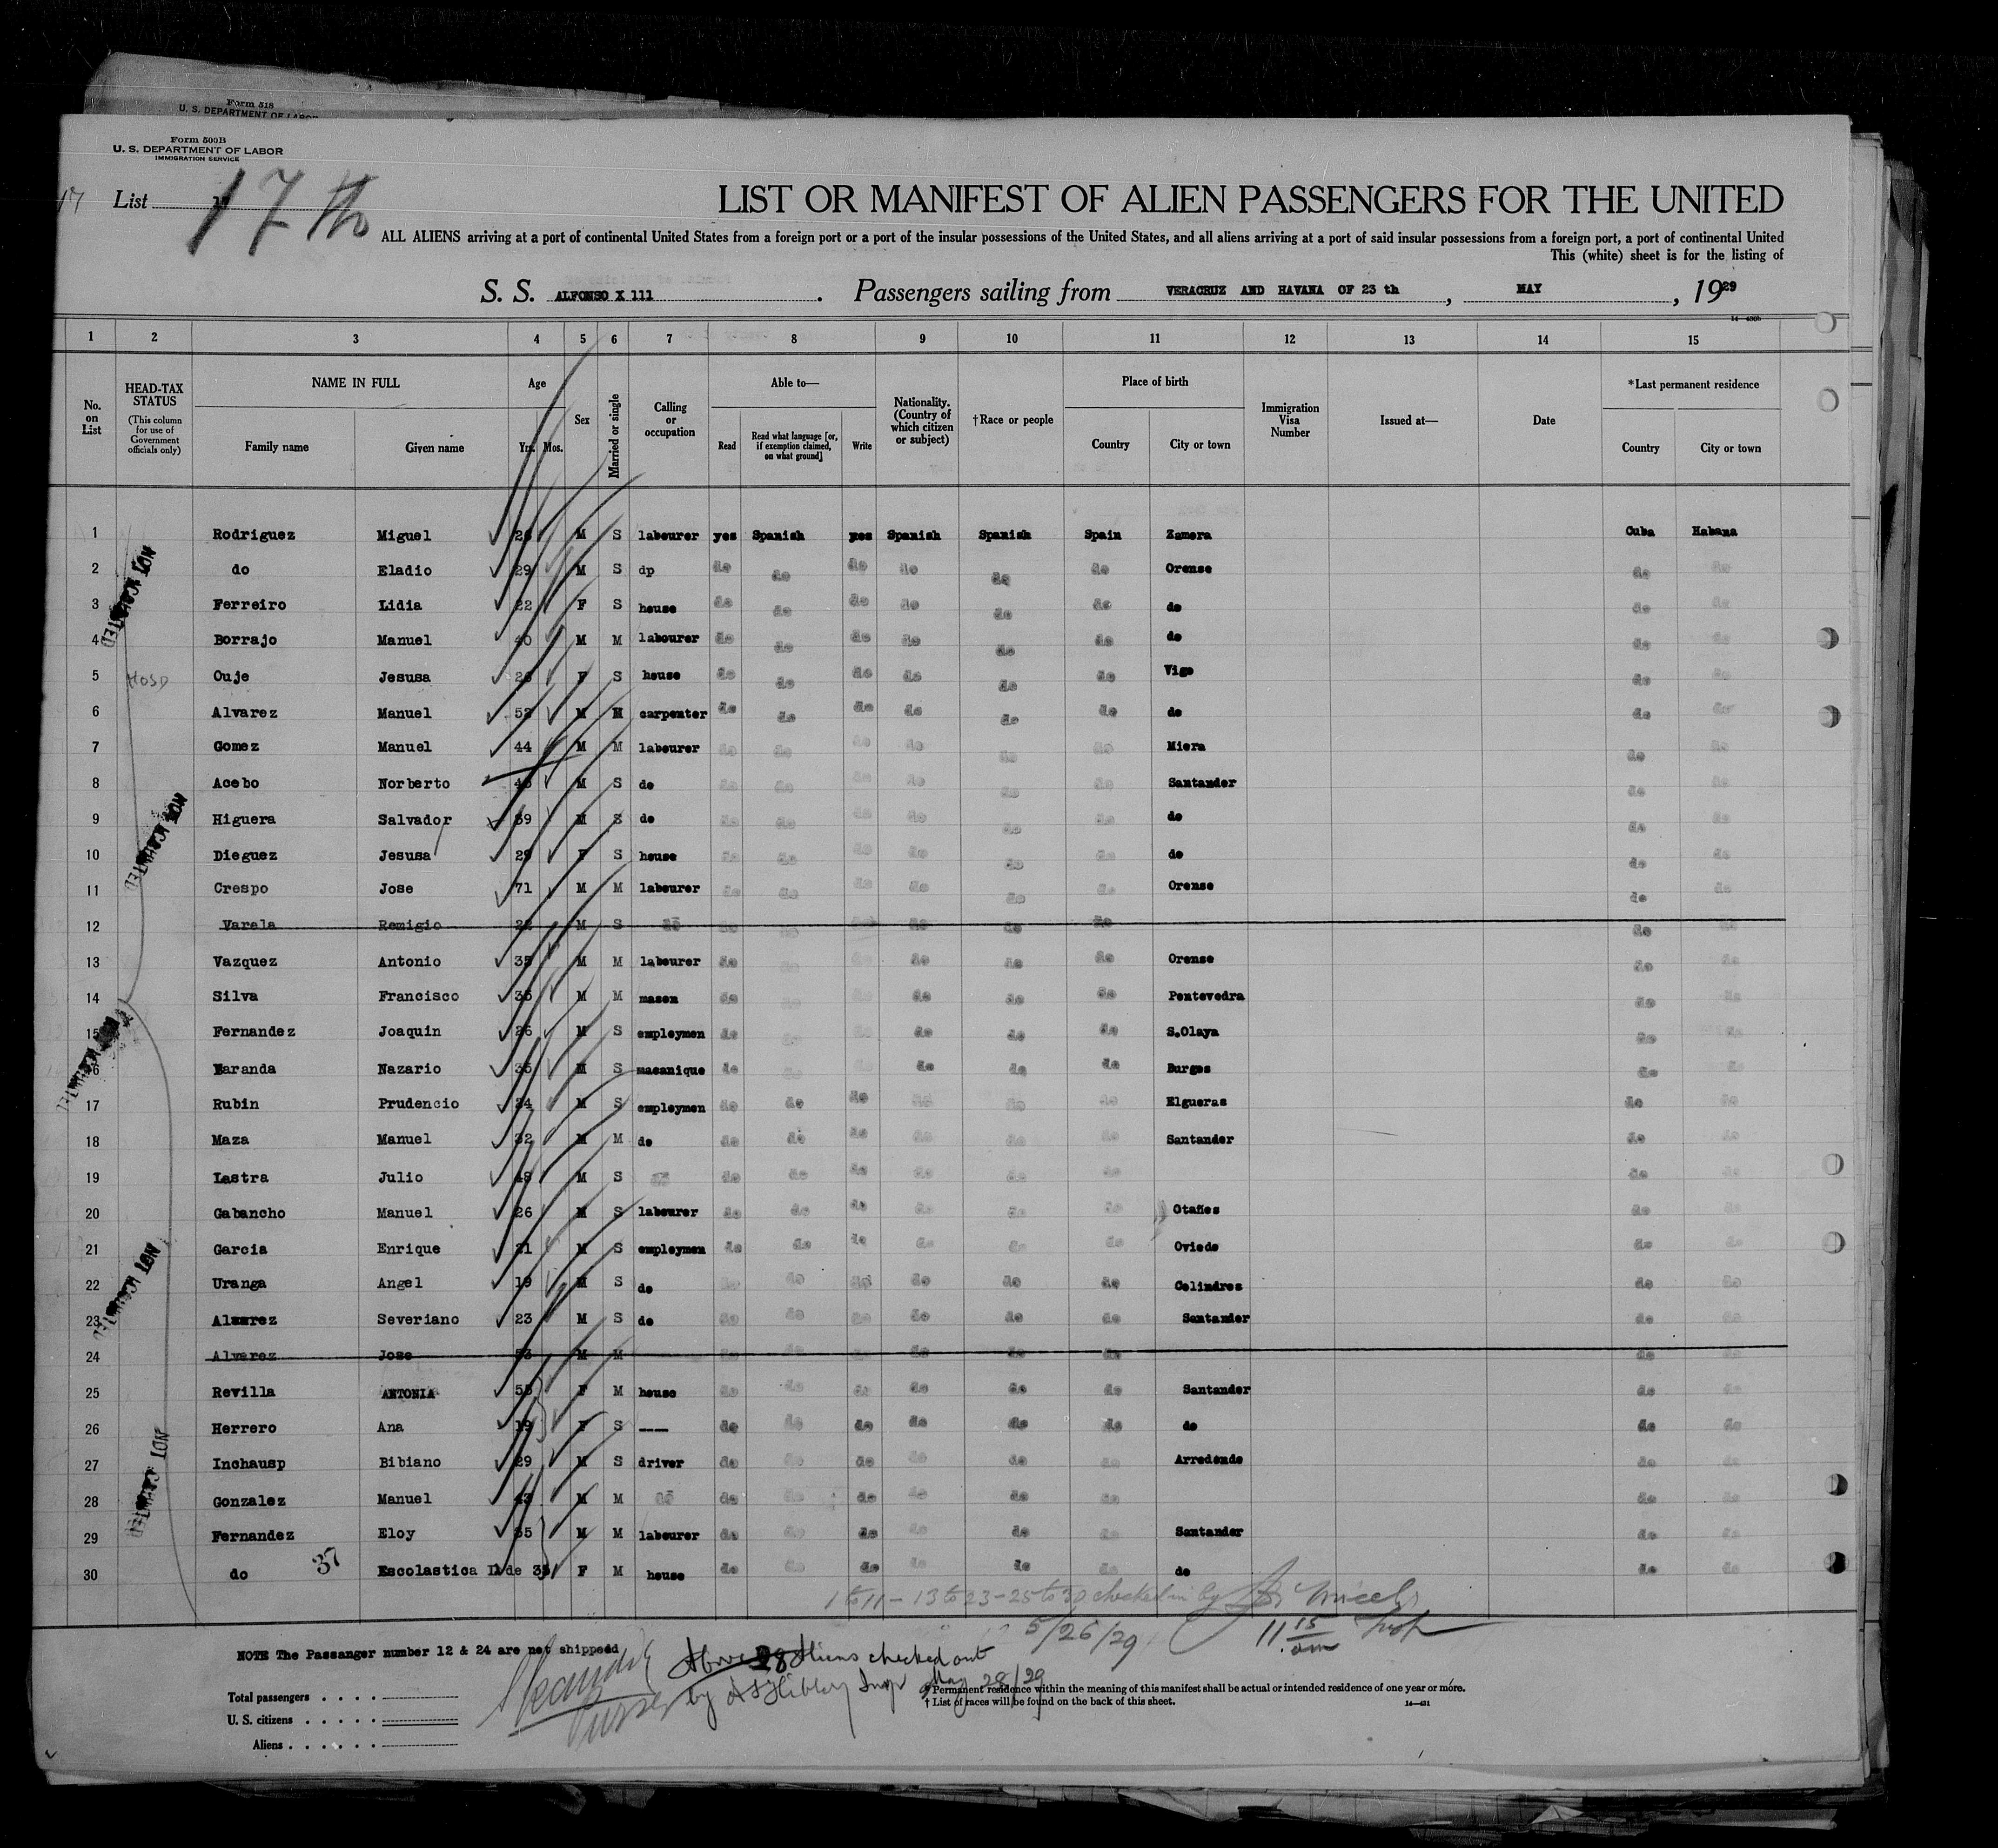 Form 518
U. S. DEPARTMENT OF LABOR
Form 500B
U. S. DEPARTMENT OF LABOR
IMMIGRATION SERVICE
17 List 17th
LIST OR MANIFEST OF ALIEN PASSENGERS FOR THE UNITED
ALL ALIENS arriving at a port of continental United States from a foreign port or a port of the insular possessions of the United States, and all aliens arriving at a port of said insular possessions from a foreign port, a port of continental United
This (white) sheet is for the listing of
S. S. ALFONSO X 111 . Passengers sailing from VERACRUZ AND HAVANA OF 23 th , MAY , 1929
1 2 3 4 5 6 7 8 9 10 11 12 13 14 15
No. on List
HEAD-TAX STATUS (This column for use of Government officials only)
NAME IN FULL Family name Given name
Age Yrs. Mos.
Sex
Married or single
Calling or occupation
Able to— Read Read what language [or, if exemption claimed, on what ground] Write
Nationality. (Country of which citizen or subject)
†Race or people
Place of birth Country City or town
Immigration Visa Number
Issued at—
Date
*Last permanent residence Country City or town
1 Rodriguez Miguel M S labourer yes Spanish yes Spanish Spanish Spain Zamora Cuba Habana
2 do Eladio 29 M S dp do do do do do do Orense do do
3 Ferreiro Lidia 22 F S house do do do do do do do do do
4 Borrajo Manuel 40 M M labourer do do do do do do do do do
5 HOSP Ouje Jesusa F S house do do do do do do Vigo do do
6 Alvarez Manuel 52 M M carpenter do do do do do do do do do
7 Gomez Manuel 44 M M labourer do do do do do do Miera do do
8 Acebo Norberto M S do do do do do do do Santander do do
9 Higuera Salvador M S do do do do do do do do do do
10 Dieguez Jesusa 29 F S house do do do do do do do do do
11 Crespo Jose 71 M M labourer do do do do do do Orense do do
12 Varela Remigio M S do do do do do do do do do
13 Vazquez Antonio 35 M M labourer do do do do Orense do do
14 Silva Francisco M M mason do do do do Pontevedra do do
15 Fernandez Joaquin 26 M S employmen do do do do S.Olaya do do
16 Baranda Nazario M S macanique do do do do Burgos do do
17 Rubin Prudencio M S employmen do do do do do do Elgueras do do
18 Maza Manuel 32 M M do do do do do do do Santander do do
19 Lastra Julio 48 M S do do do do do do do do do
20 Gabancho Manuel 26 M S labourer do do do do do do Otañes do do
21 Garcia Enrique M S employmen do do do do do do Oviedo do do
22 Uranga Angel 19 M S do do do do do do do Colindres do do
23 Alvarez Severiano 23 M S do do do do do do do Santander do do
24 Alvarez Jose M M do do do do do
25 Revilla ANTONIA F M house do do do do do do Santander do do
26 Herrero Ana 19 F S ---- do do do do do do do do do
27 Inchausp Bibiano 29 M S driver do do do do do do Arredondo do do
28 Gonzalez Manuel 43 M M do do do do do do do do do
29 Fernandez Eloy M M labourer do do do do do do Santander do do
30 do 37 Escolastica D de F M house do do do do do do do do do
1 to 11 – 13 to 23 – 25 to 30 checked in by
5/26/29 11 15 am
NOTE The Passanger number 12 & 24 are not shippedd
Above 28 Aliens checked out
by May 28/29
Purser
Total passengers
U. S. citizens
Aliens
* Permanent residence within the meaning of this manifest shall be actual or intended residence of one year or more.
† List of races will be found on the back of this sheet.